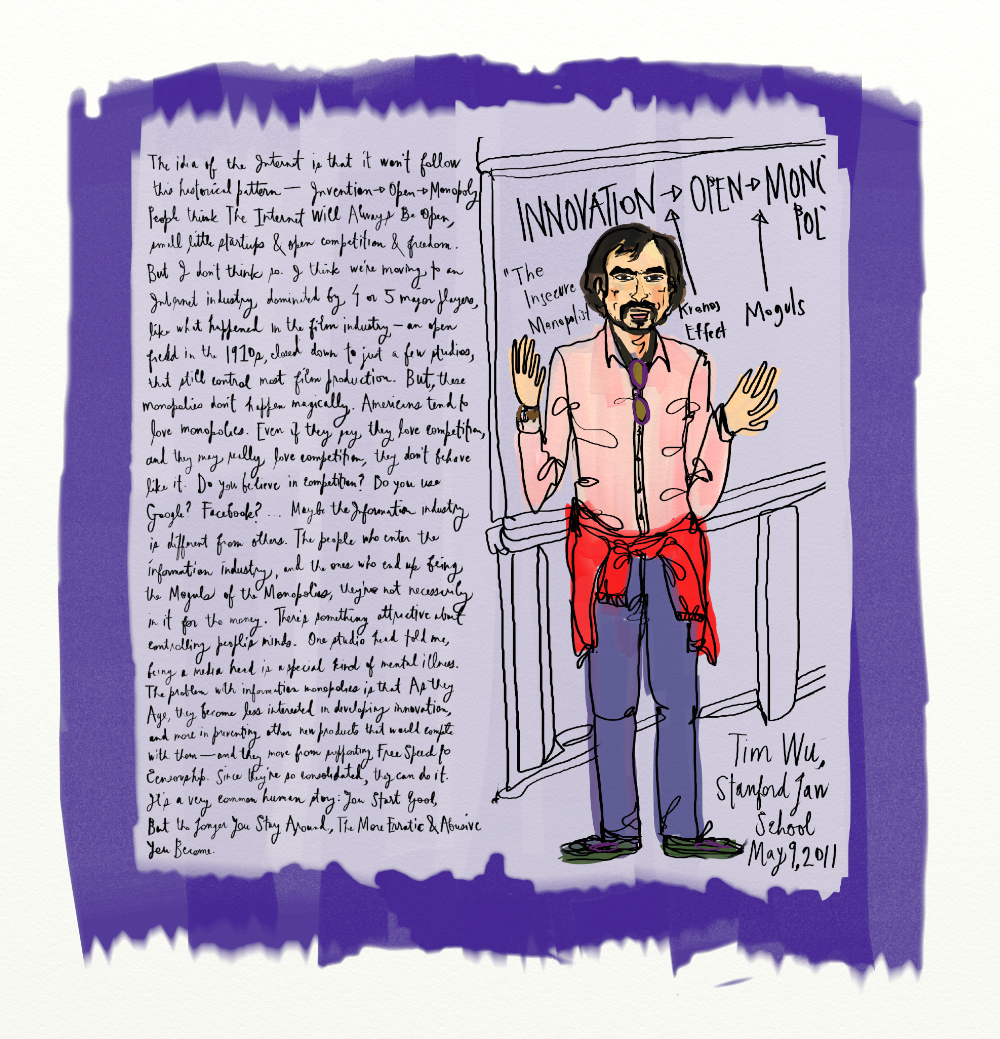 The idea of the Internet is that it won't follow
this historical pattern — Invention → Open → Monopoly
People think The Internet Will Always Be Open,
small little startups & open competition & freedom.
But I don't think so. I think we're moving to an
Internet industry dominated by 4 or 5 major players,
like what happened in the film industry — an open
field in the 1910s, closed down to just a few studios,
that still control most film production. But, these
monopolies don't happen magically. Americans tend to
love monopolies. Even if they say, they love competition,
and they may really, love competition, they don't behave
like it. Do you believe in competition? Do you use
Google? Facebook? ... Maybe the Information industry
is different from others. The people who enter the
information industry, and the ones who end up being
the Moguls of the Monopolies, they're not necessarily
in it for the money. There's something attractive about
controlling people's minds. One studio head told me,
being a media head is a special kind of mental illness.
The problem with information monopolies is that As they
Age, they become less interested in developing innovation,
and more in preventing other new products that would compete
with them — and they move from supporting Free Speed to
Censorship. Since they're so consolidated, they can do it.
It's a very common human story: You Start Good,
But the Longer You Stay Around, The More Erratic & Abusive
You Become.
INNOVATION → OPEN → MONO
POL
"The
Insecure
Monopolist
Kronos
Effect
Moguls
Tim Wu,
Stanford Law
School
May 9, 2011